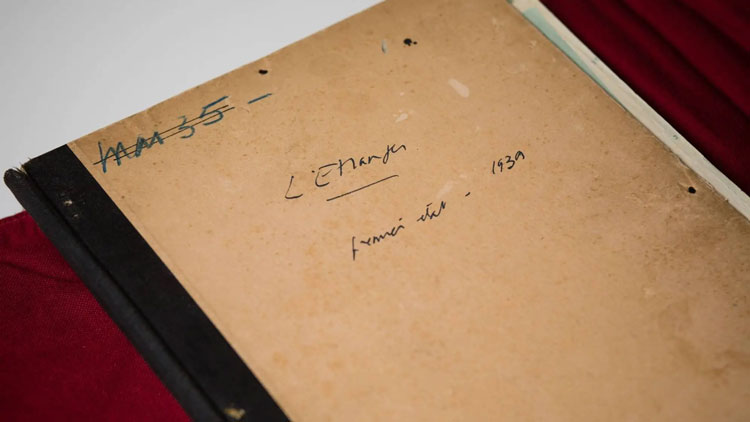 MM35 -
L'Etranger
premier état - 1939